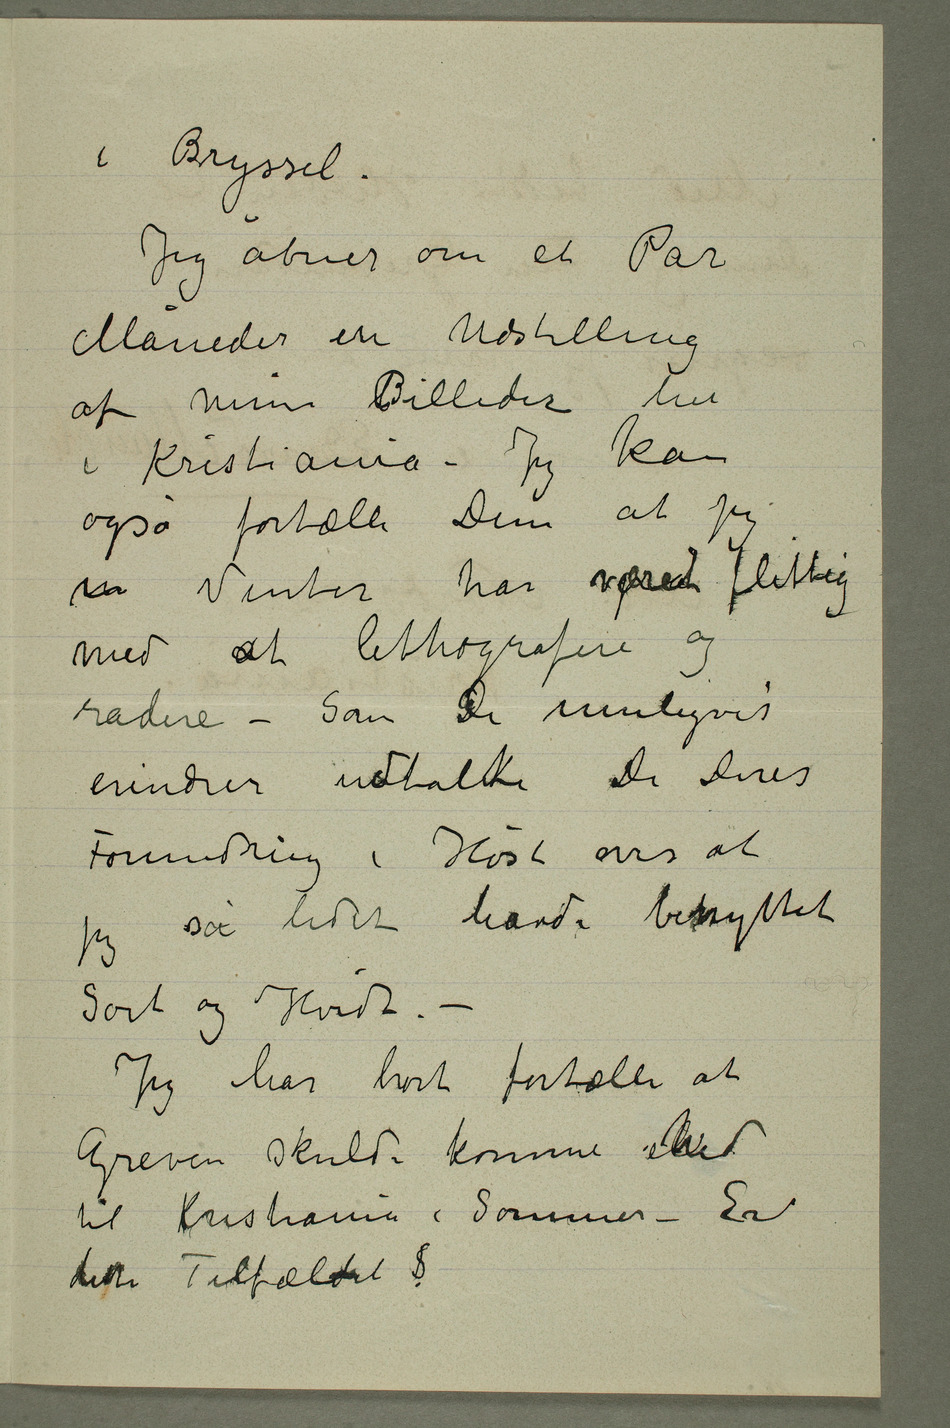 i Bryssel.
Jeg åbner om et Par
Måneder en Udstilling
af mine Billeder her
i Kristiania – Jeg kan
også fortælle Dem at jeg
Vinter har været flittig
med at lithografere og
radere – Som De rimeligvis
erindrer udtalte De Deres
Forundring i Høst over at
jeg så lidet havde benyttet
Sort og Hvidt. –
Jeg har hørt fortælle at
Greven skulde komme ned
til Kristiania i Sommer – Er
dette Tilfældet?